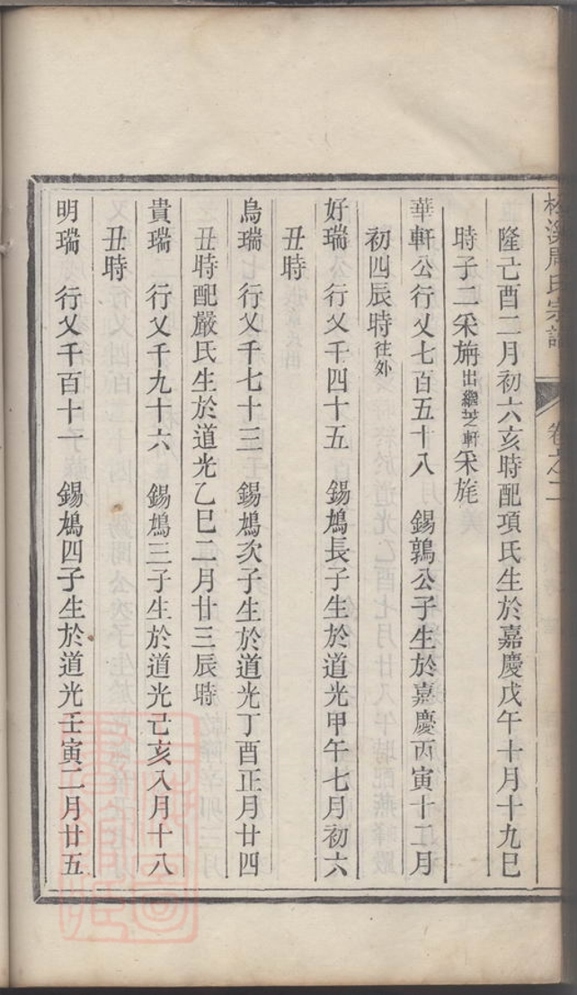 周氏宗譜 卷之二
隆己酉二月初六亥時配項氏生於嘉慶戊午十月十九巳
時子二采旃出繼芝軒采旄
華軒公行乂七百五十八 錫鶉公子生於嘉慶丙寅十二月
初四辰時往外
好瑞 行乂千四十五 錫鴆長子生於道光甲午七月初六
丑時
烏瑞 行乂千七十三 錫鴆次子生於道光丁酉正月廿四
丑時配嚴氏生於道光乙巳二月廿三辰時
貴瑞 行乂千九十六 錫鴆三子生於道光己亥八月十八
丑時
明瑞 行乂千百十一 錫鴆四子生於道光壬寅二月廿五